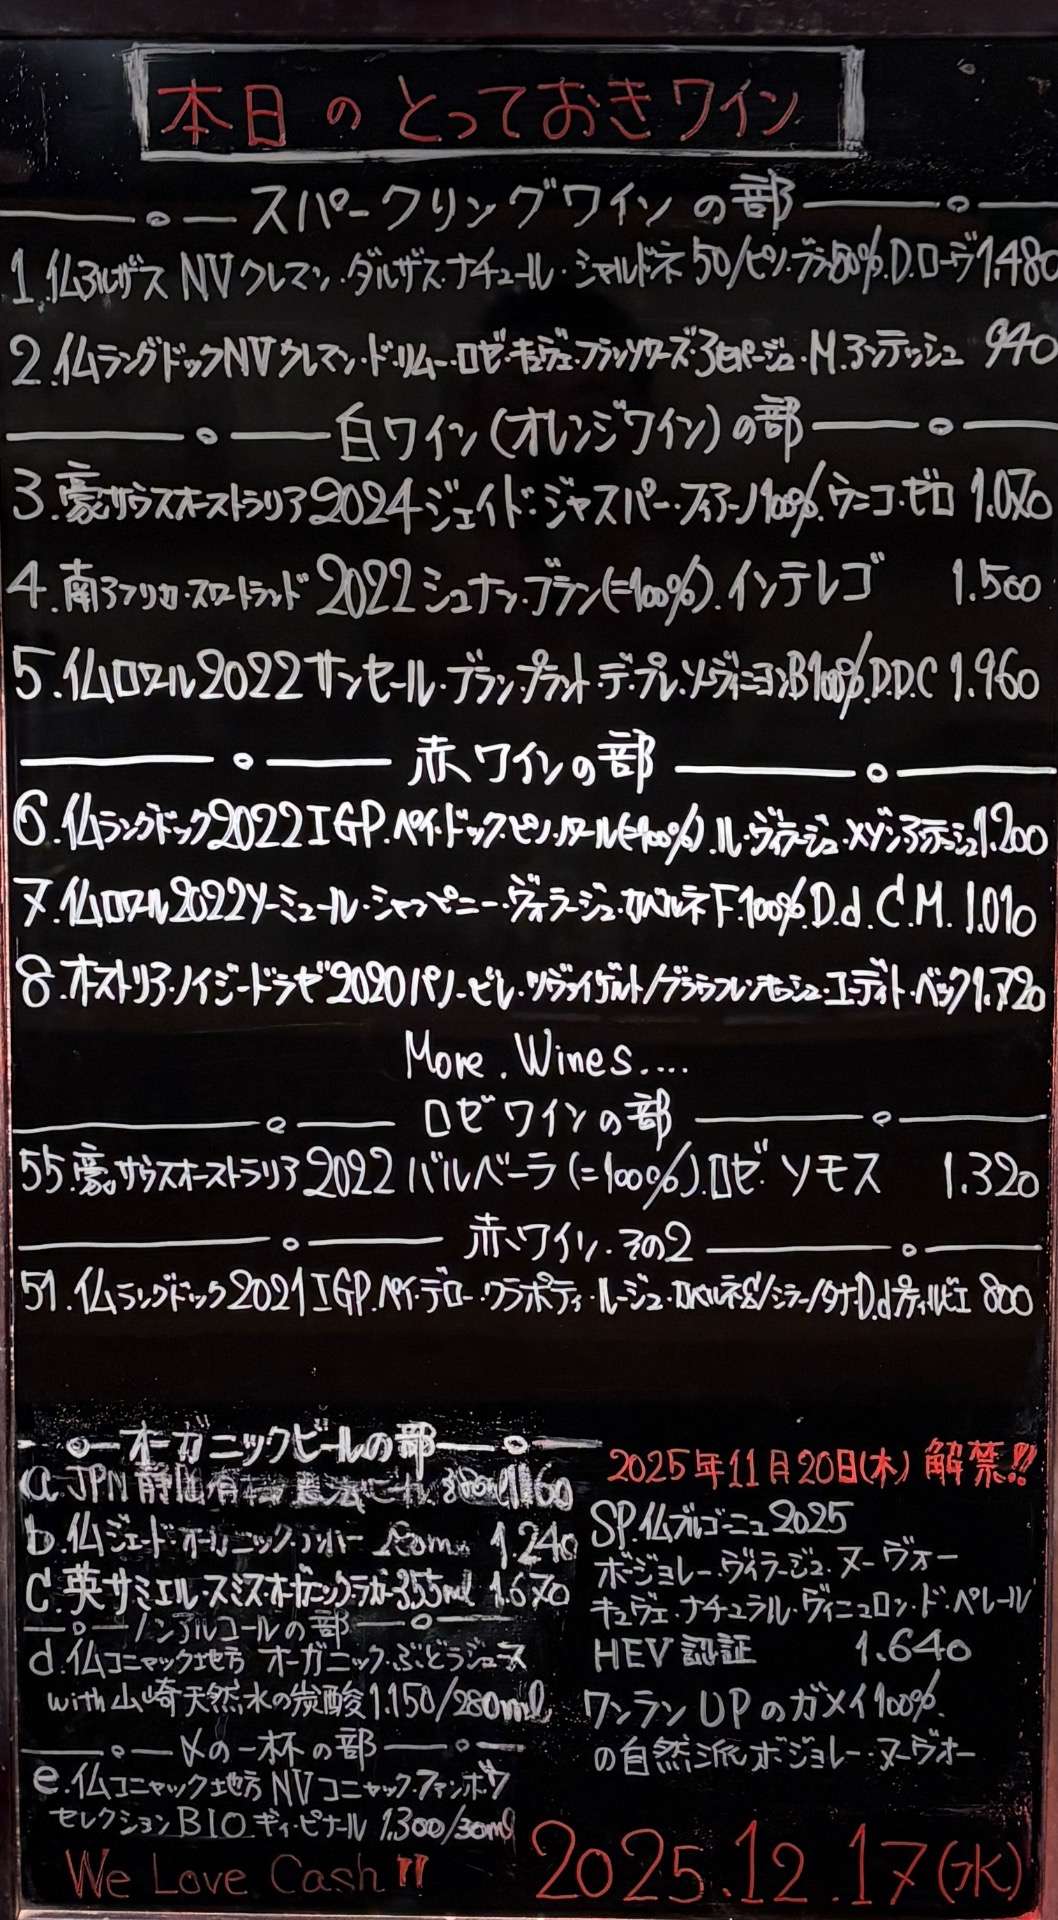 本日のとっておきワイン
スパークリングワインの部
1.仏アルザス NV クレマン・ダルザス・ナチュール・シャルドネ 50/ピノ・ブラン50%.D.ローヴ 1.480
2.仏ラングドックNVクレマン・ド・リムー・ロゼ・キュヴェ・フランソワーズ・3セパージュ・M.アンテッシュ 940
白ワイン(オレンジワイン)の部
3.豪.サウスオーストラリア2024ジェイド・ジャスパー・フィアーノ100%.ウニコ・ゼロ 1.070
4.南アフリカ・スワートランド 2022シュナン・ブラン(=100%).インテレゴ 1.500
5.仏ロワール2022サンセール・ブラン・プラント・デ・プレ・ソーヴィニヨンB100%D.D.C 1.960
赤ワインの部
6.仏ラングドック2022IGP.ペイ・ドック・ピノ・ノワール(=100%).ル・ヴィラージュ・メゾン・アンテッシュ1.200
7.仏ロワール2022ソーミュール・シャンピニー・ヴィラージュ・カベルネF.100%.D.d.C.M. 1.010
8.オーストリア・ノイジードラゼ2020パノービレ・ツヴァイゲルト/ブラウフレンキッシュ・エーディト・ベック1.720
More.Wines....
ロゼワインの部
55.豪.サウスオーストラリア2022バルベーラ(=100%).ロゼ.ソモス 1.320
赤ワイン.その2
51.仏ラングドック2021IGP.ペイ・デロー・クラポティ・ルージュ・カベルネS/シラー/タナD.dプティルビエ 800
オーガニックビールの部
a.JPN静岡 1.160
b.仏ジェード・オーガニック・アンバー 1.240
C.英サミエル・スミス・オーガニックラガー355ml 1.670
ノンアルコールの部
d.仏コニャック地方 オーガニック・ぶどうジュース
with山崎天然水の炭酸 1.150/280ml
〆の一杯の部
e.仏コニャック地方NVコニャック・ファンボワ
セレクションBIO.ギィ・ピナール 1.300/30ml
We Love Cash!!
2025年11月20日(木)解禁!!
SP.仏ブルゴーニュ2025
ボージョレー・ヴィラージュ・ヌーヴォー
キュヴェ・ナチュラル・ヴィニュロン・ド・ペレール
HEV認証 1.640
ワンランUPのガメイ100%.
の自然派ボジョレー・ヌーヴォー
2025.12.17(水)